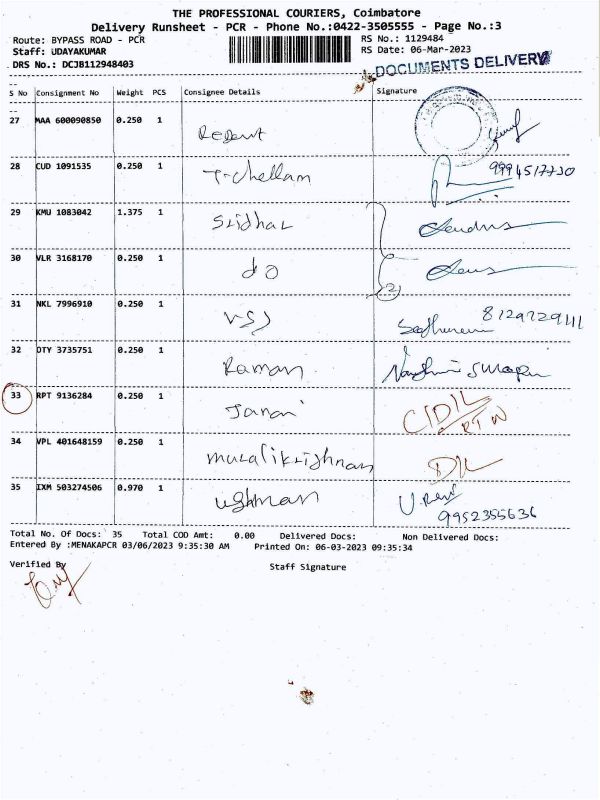 THE PROFESSIONAL COURIERS, Coimbatore
Delivery Runsheet - PCR - Phone No.:0422-3505555 - Page No.:3
Route: BYPASS ROAD - PCR RS No.: 1129484
Staff: UDAYAKUMAR RS Date: 06-Mar-2023
DRS No.: DCJB112948403 DOCUMENTS DELIVERY
S No Consignment No Weight PCS Consignee Details Signature
27 MAA 600090850 0.250 1
28 CUD 1091535 0.250 1 T-chellam
29 KMU 1083042 1.375 1 Sridhar
30 VLR 3168170 0.250 1 do
31 NKL 7996910 0.250 1 8129729111
32 OTY 3735751 0.250 1 Raman
33 RPT 9136284 0.250 1 CIDIL
34 VPL 401648159 0.250 1 muralikrishnan
35 IXM 503274506 0.970 1 9952355636
Total No. Of Docs: 35 Total COD Amt: 0.00 Delivered Docs: Non Delivered Docs:
Entered By :MENAKAPCR 03/06/2023 9:35:30 AM Printed On: 06-03-2023 09:35:34
Verified By Staff Signature